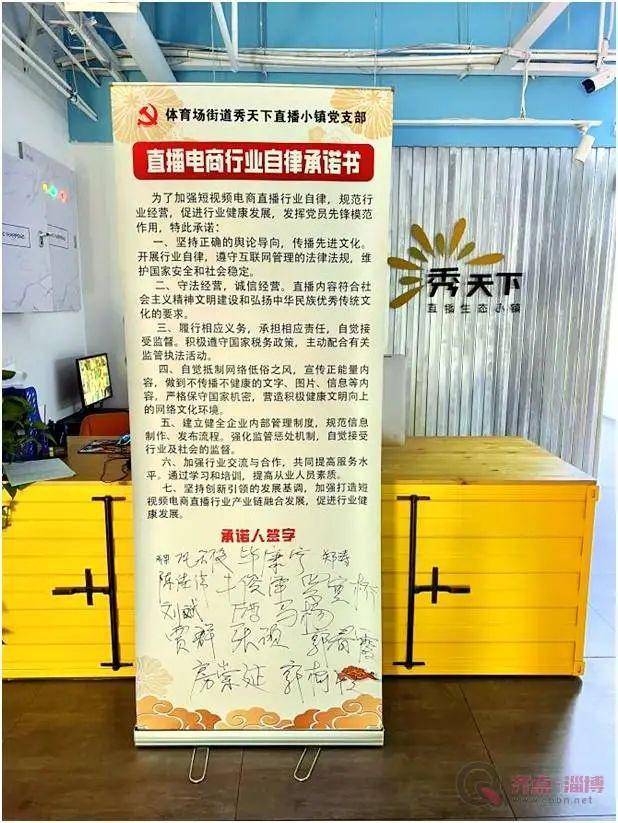 体育场街道秀天下直播小镇党支部
直播电商行业自律承诺书
为了加强短视频电商直播行业自律，规范行
业经营，促进行业健康发展，发挥党员先锋模范
作用，特此承诺：
一、坚持正确的舆论导向，传播先进文化。
开展行业自律，遵守互联网管理的法律法规，维
护国家安全和社会稳定。
二、守法经营，诚信经营。直播内容符合社
会主义精神文明建设和弘扬中华民族优秀传统文
化的要求。
三、履行相应义务，承担相应责任，自觉接
受监督。积极遵守国家税务政策，主动配合有关
监管执法活动。
四、自觉抵制网络低俗之风，宣传正能量内
容，做到不传播不健康的文字、图片、信息等内
容。严格保守国家机密，营造积极健康文明向上
的网络文化环境。
五、建立健全企业内部管理制度，规范信息
制作、发布流程。强化监管惩处机制，自觉接受
行业及社会的监督。
六、加强行业交流与合作，共同提高服务水
平。通过学习和培训，提高从业人员素质。
七、坚持创新引领的发展基调，加强打造短
视频电商直播行业产业链融合发展，促进行业健
康发展。
承诺人签字
刘斌 马杨
贾群 张硕 郭春霞
房崇延
秀天下
直播生态小镇
齐点·淄博